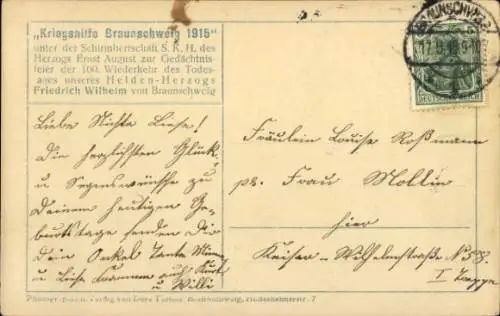 „Kriegshilfe Braunschweig 1915"
unter der Schirmherrschaft S. K. H. des
Herzogs Ernst August zur Gedächtnis-
feier der 100. Wiederkehr des Todes-
tages unseres Helden-Herzogs
Friedrich Wilhelm von Braunschweig
BRAUNSCHWEIG
DEUTSCHES REICH
Liebe Nichte Liese!
Die herzlichsten Glück-
u Segenswünsche zu
Deinem heutigen Ge-
burtstage senden Dir
Dein Onkel Tante
u Liese auch Kurt
u Willi
Fräulein Louise Roßmann
pr. Frau Mollin
hier
Kaiser-Wilhelmstraße No 58
I Treppe
Verlag von
Braunschweig, 7